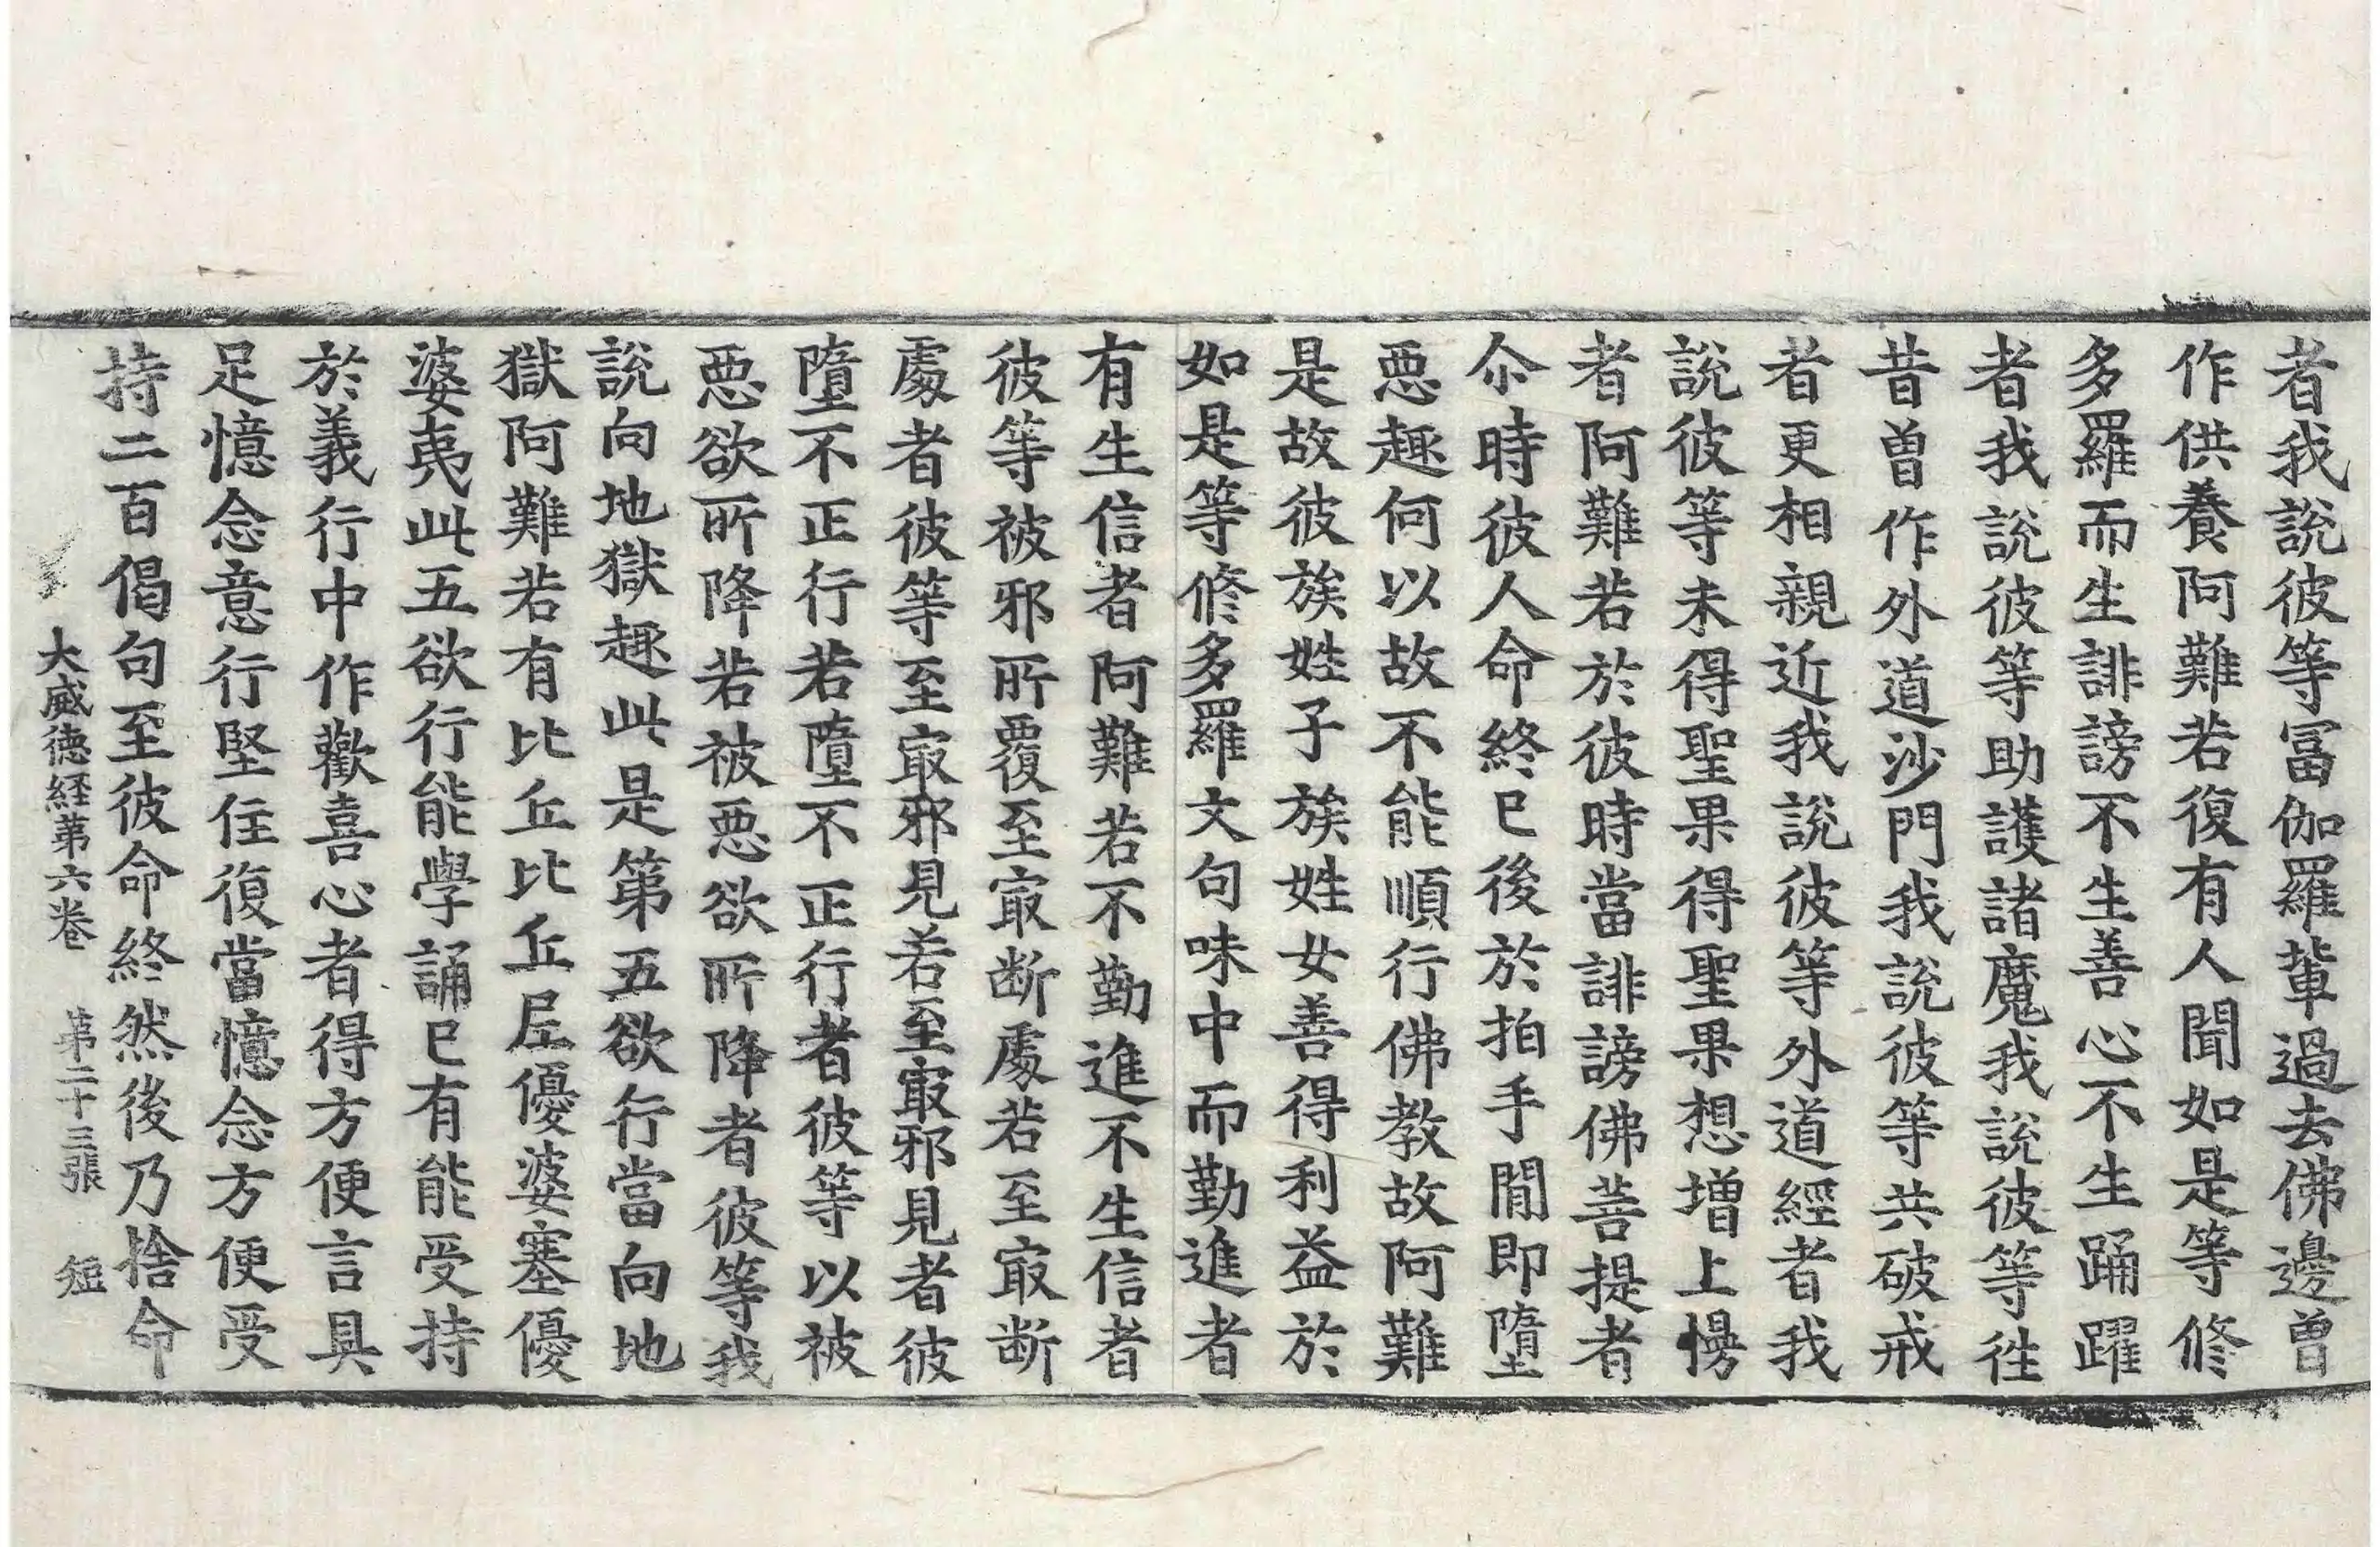 者我說彼等冨伽羅軰過去佛邊曽
作供養阿難若復有人聞如是等修
多羅而生誹謗不生善心不生踊躍
者我說彼等助護諸魔我說彼等徃
昔曽作外道沙門我說彼等共破戒
者更相親近我說彼等外道經者我
說彼等未得聖果得聖果想增上慢
者阿難若於彼時當誹謗佛菩提者
尒時彼人命終已後於拍手閒即墮
惡趣何以故不能順行佛教故阿難
是故彼族姓子族姓女善得利益於
如是等修多羅文句味中而勤進者
有生信者阿難若不勤進不生信者
彼等被邪所覆至㝡断處若至㝡断
處者彼等至㝡邪見若至㝡邪見者彼
墮不正行若墮不正行者彼等以被
惡欲所降若被惡欲所降者彼等我
說向地獄趣此是第五欲行當向地
獄阿難若有比丘比丘尼優婆塞優
婆夷此五欲行能學誦已有能受持
於義行中作歡喜心者得方便言具
足憶念意行堅住復當憶念方便受
持二百偈句至彼命終然後乃捨命
大威德経苐六卷 苐二十三張 短